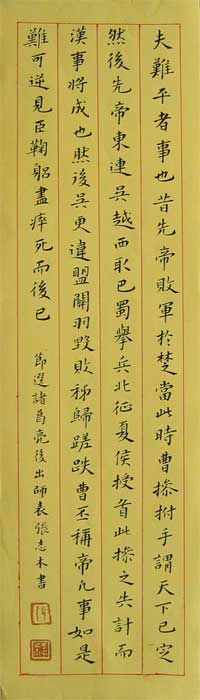 夫難平者事也昔先帝敗軍於楚當此時曹操拊手謂天下已定
然後先帝東連吳越西取巴蜀擧兵北征夏侯授首此操之失計而
漢事将成也然後吳更違盟關羽毀敗秭歸蹉跌曹丕稱帝凡事如是
難可逆見臣鞠躬盡瘁死而後已
節選諸葛亮後出師表張志木書